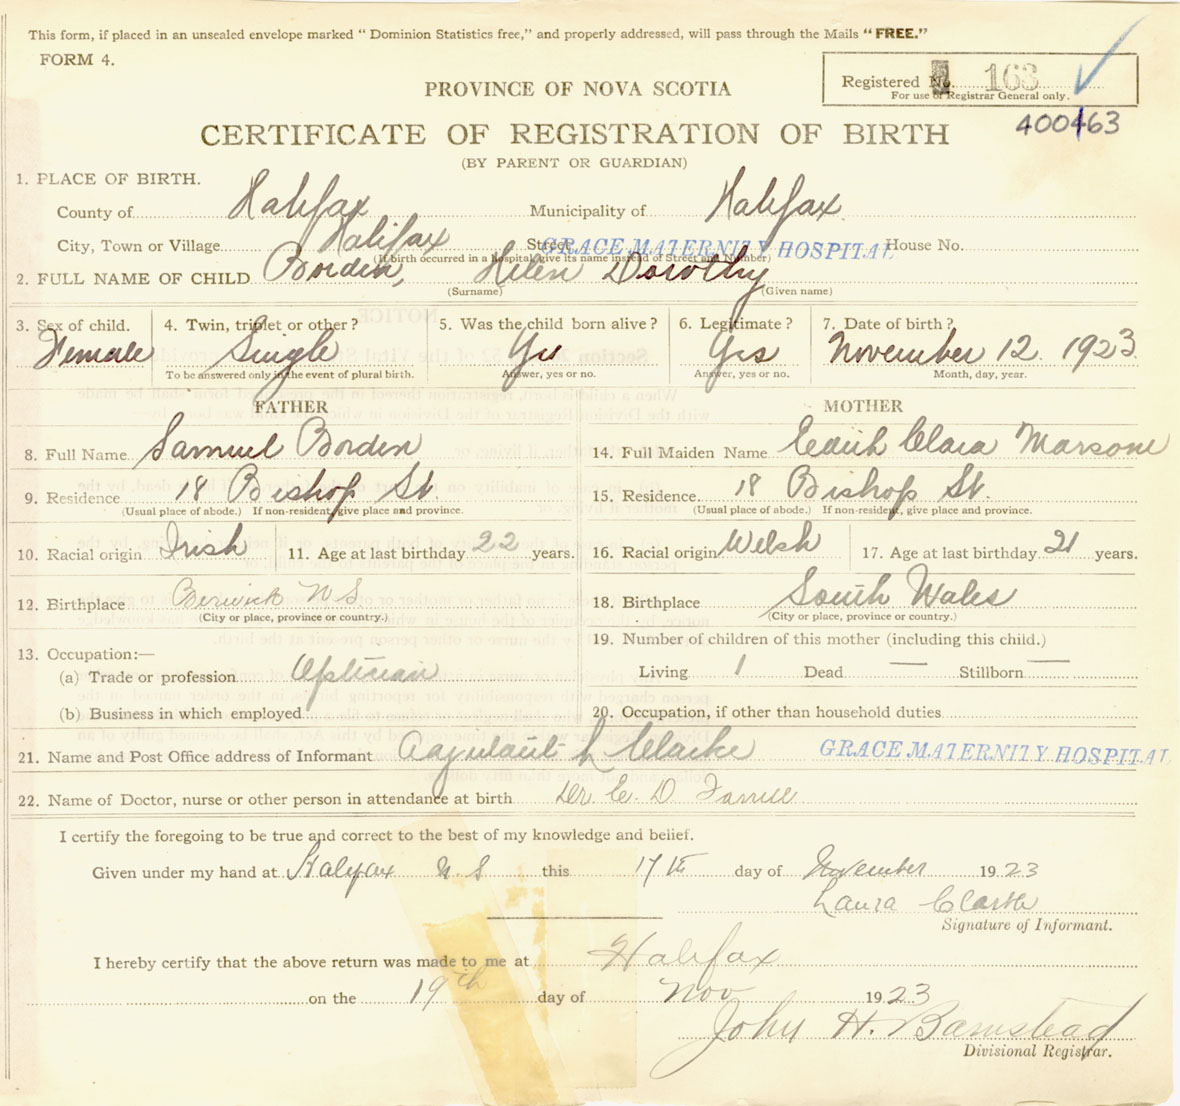 This form, if placed in an unsealed envelope marked "Dominion Statistics free," and properly addressed, will pass through the Mails "FREE."
FORM 4.
Registered No. 163
For use of Registrar General only.
400463
PROVINCE OF NOVA SCOTIA
CERTIFICATE OF REGISTRATION OF BIRTH
(BY PARENT OR GUARDIAN)
1. PLACE OF BIRTH.
County of Halifax Municipality of Halifax
City, Town or Village Halifax Street GRACE MATERNITY HOSPITAL House No.
(If birth occurred in a hospital, give its name instead of Street and Number)
2. FULL NAME OF CHILD Borden, Helen Dorothy
(Surname) (Given name)
3. Sex of child. 4. Twin, triplet or other? 5. Was the child born alive? 6. Legitimate? 7. Date of birth?
Female Single Yes Yes November 12. 1923
To be answered only in the event of plural birth. Answer, yes or no. Answer, yes or no. Month, day, year.
FATHER MOTHER
8. Full Name Samuel Borden 14. Full Maiden Name Edith Clara
9. Residence 18 Bishop St. 15. Residence 18 Bishop St.
(Usual place of abode.) If non-resident, give place and province. (Usual place of abode.) If non-resident, give place and province.
10. Racial origin Irish 11. Age at last birthday 22 years. 16. Racial origin Welsh 17. Age at last birthday 21 years.
12. Birthplace Berwick N S 18. Birthplace South Wales
(City or place, province or country.) (City or place, province or country.)
19. Number of children of this mother (including this child.)
13. Occupation:—
(a) Trade or profession Optician Living 1 Dead — Stillborn —
(b) Business in which employed 20. Occupation, if other than household duties
21. Name and Post Office address of Informant L Clarke GRACE MATERNITY HOSPITAL
22. Name of Doctor, nurse or other person in attendance at birth Dr. E. D. Farrell
I certify the foregoing to be true and correct to the best of my knowledge and belief.
Given under my hand at Halifax N. S this 17th day of November 1923
Laura Clarke
Signature of Informant.
I hereby certify that the above return was made to me at Halifax
on the 19th day of Nov 1923
John H. Barnstead
Divisional Registrar.